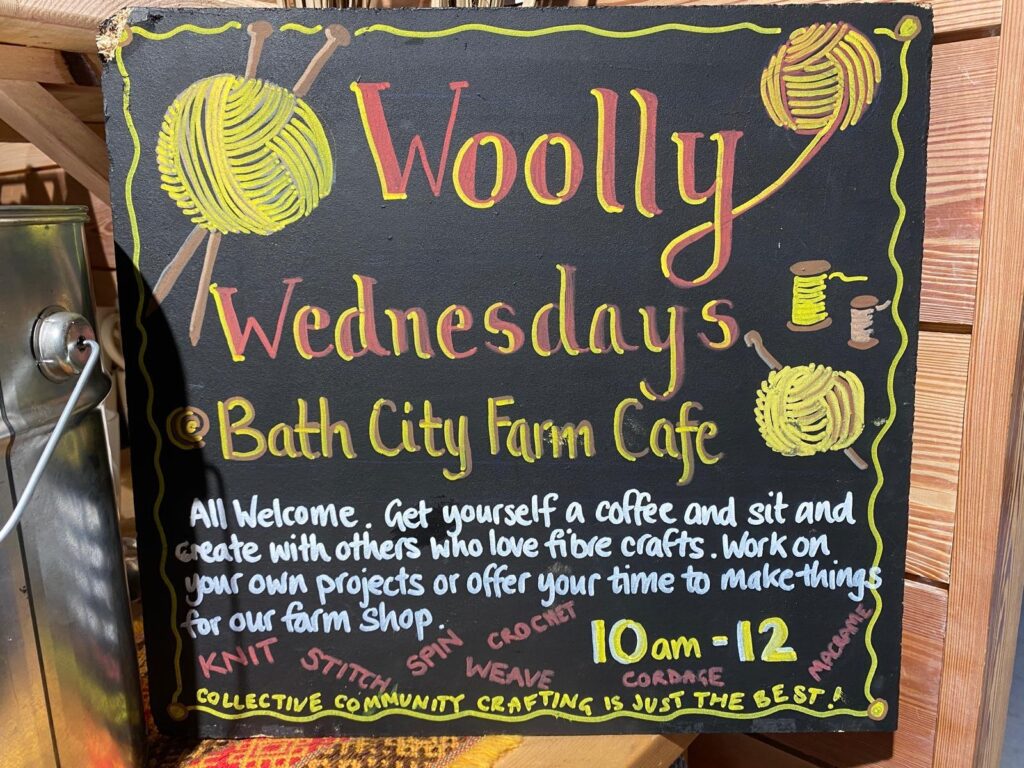 Woolly
Wednesdays
@ Bath City Farm Cafe
All Welcome. Get yourself a coffee and sit and
create with others who love fibre crafts. Work on
your own projects or offer your time to make things
for our farm shop.
10am - 12
KNIT STITCH SPIN WEAVE CROCHET CORDAGE MACRAME
COLLECTIVE COMMUNITY CRAFTING IS JUST THE BEST!